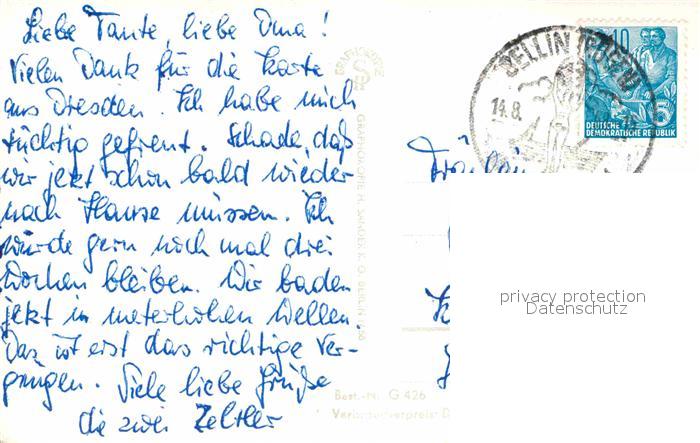 Liebe Tante, liebe Oma!
Vielen Dank für die Karte
aus Dresden. Ich habe mich
tüchtig gefreut. Schade, daß
wir jetzt schon bald wieder
nach Hause müssen. Ich
würde gern noch mal drei
Wochen bleiben. Wir baden
jetzt in meterhohen Wellen.
Das ist erst das richtige Ver-
gnügen. Viele liebe Grüße
die zwei Zeltler
GRAPHOKOPIE H. SANDER K. G. BERLIN
SELLIN (RÜGEN)
14.8.
10
5
DEUTSCHE
DEMOKRATISCHE REPUBLIK
Fräulein
privacy protection
Datenschutz
Best.-Nr. G 426
Verbraucherpreis: D